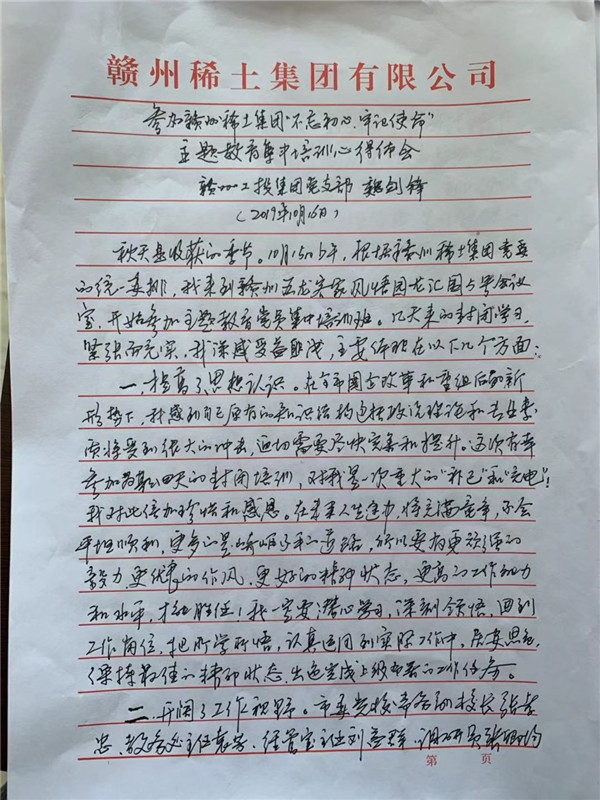 赣州稀土集团有限公司
参加赣州稀土集团"不忘初心、牢记使命"
主题教育集中培训心得体会
赣州工投集团党支部 魏剑锋
(2019年10月16日)
秋天是收获的季节。10月15日上午,根据赣州稀土集团党委
的统一安排,我来到赣州五龙客家风情园龙汇国5号会议
室,开始参加主题教育党员集中培训班。几天来的封闭学习,
紧张而充实,我深感受益匪浅,主要体现在以下几个方面:
一、提高了思想认识。在全市国企改革和重组后的新
形势下,我感到自己原有的知识结构包括政治理论和专业素
质将受到很大的冲击,迫切需要尽快完善和提升。这次有幸
参加为期四天的封闭培训,对我是一次重大的"补已"和"充电"!
我对此倍加珍惜和感恩。在未来人生途中,将充满竞争,不会
平坦顺利,更多的是崎岖和道路,所以要有更顽强的
毅力、更优良的作风、更好的精神状态、更高的工作能力
和水平,才能胜任!我一定要潜心学习,深刻领悟,回到
工作岗位,把所学所悟,认真运用到实际工作中,
保持最佳的精神状态,出色完成上级部署的工作任务。
二、开阔了工作视野。市委党校常务副校长张孝
忠、教务处主任袁、经管室主任刘益群、调研员张明均
第 页